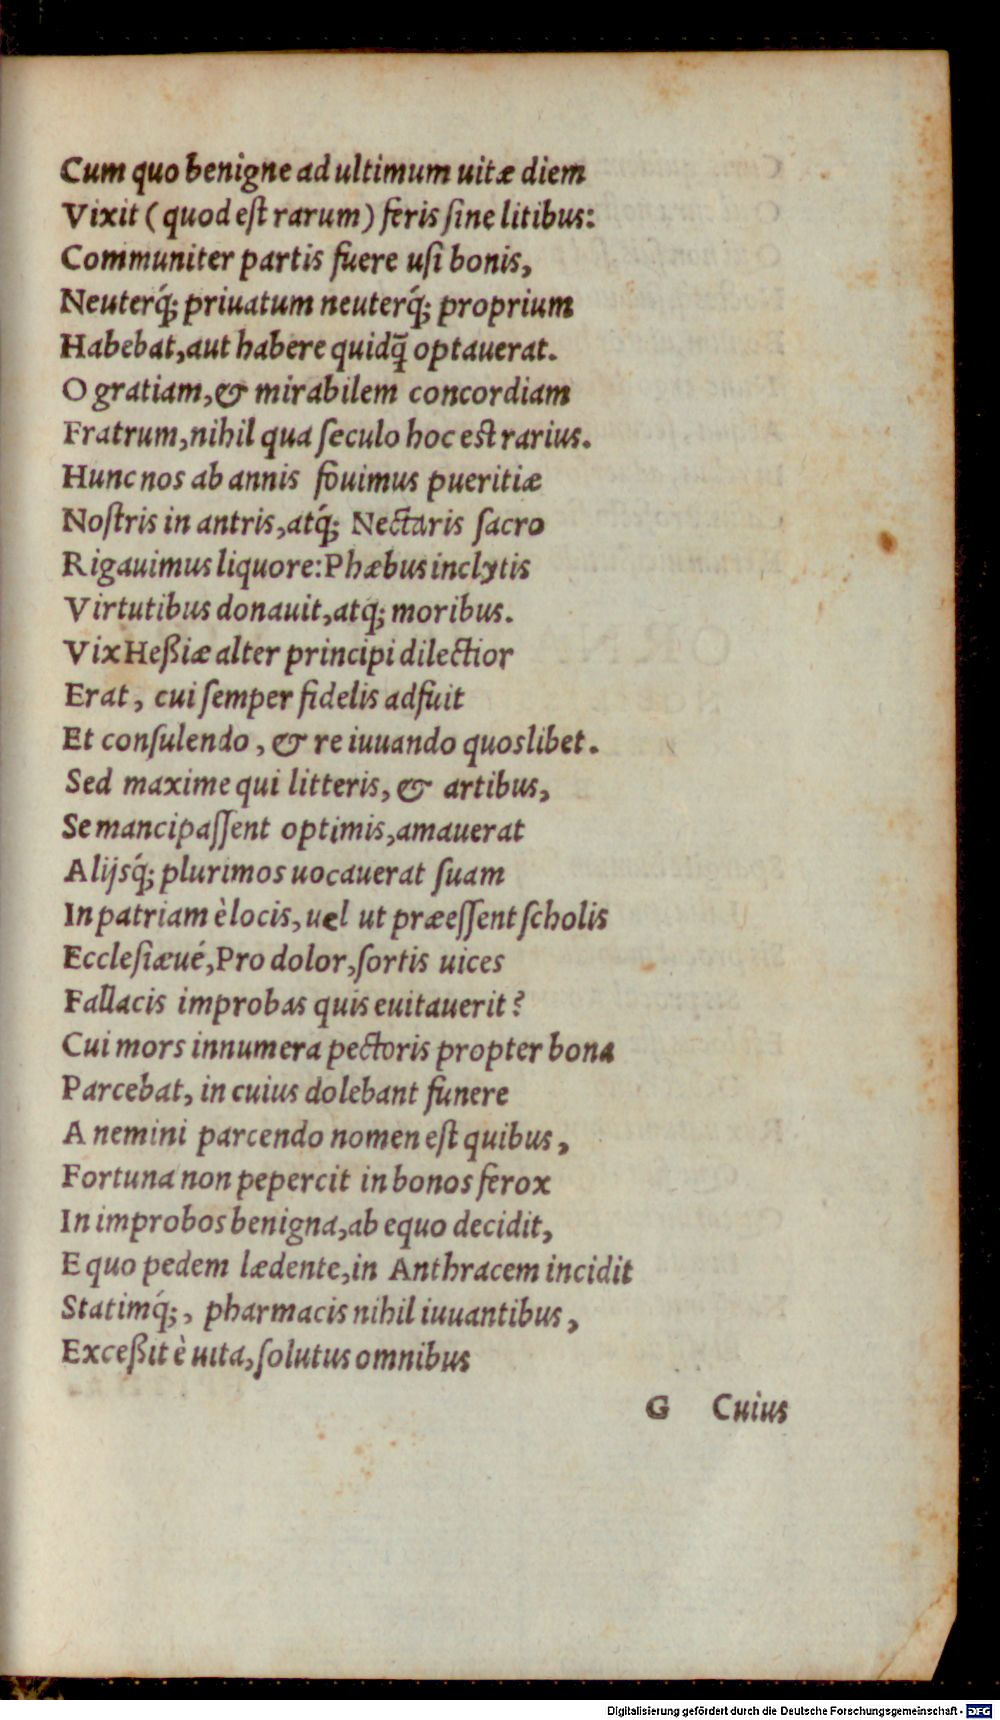 Cum quo benigne ad ultimum uitæ diem
Vixit (quod eſt rarum) feris ſine litibus:
Communiter partis fuere uſi bonis,
Neuterq́; priuatum neuterq́; proprium
Habebat, aut habere quidq̃ optauerat.
O gratiam, & mirabilem concordiam
Fratrum, nihil qua ſeculo hoc eſt rarius.
Hunc nos ab annis fouimus pueritiæ
Noſtris in antris, atq́; Nectaris ſacro
Rigauimus liquore: Phæbus inclytis
Virtutibus donauit, atq; moribus.
Vix Heßiæ alter principi dilectior
Erat, cui ſemper fidelis adfuit
Et conſulendo, & re iuuando quoslibet.
Sed maxime qui litteris, & artibus,
Se mancipaſſent optimis, amauerat
Alijsq́; plurimos uocauerat ſuam
In patriam è locis, uel ut præeſſent ſcholis
Eccleſiæué, Pro dolor, ſortis uices
Fallacis improbas quis euitauerit?
Cui mors innumera pectoris propter bona
Parcebat, in cuius dolebant funere
A nemini parcendo nomen eſt quibus,
Fortuna non pepercit in bonos ferox
In improbos benigna, ab equo decidit,
E quo pedem lædente, in Anthracem incidit
Statimq́;, pharmacis nihil iuuantibus,
Exceßit è uita, ſolutus omnibus
G Cuius
Digitalisierung gefördert durch die Deutsche Forschungsgemeinschaft - DFG